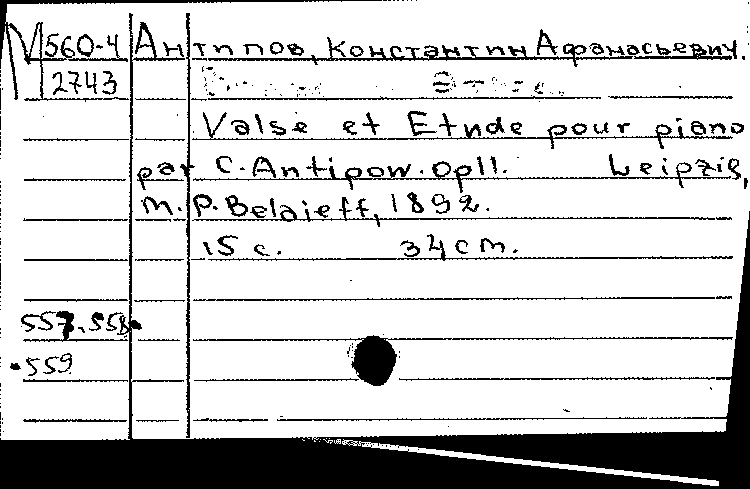 М 560-4 Антипов, Константин Афанасьевич.
2743
Valse et Etude pour piano
par C. Antipow. Op11. Leipzig,
M. P. Belaieff, 1892.
15 c. 34 cm.
557, 558
559